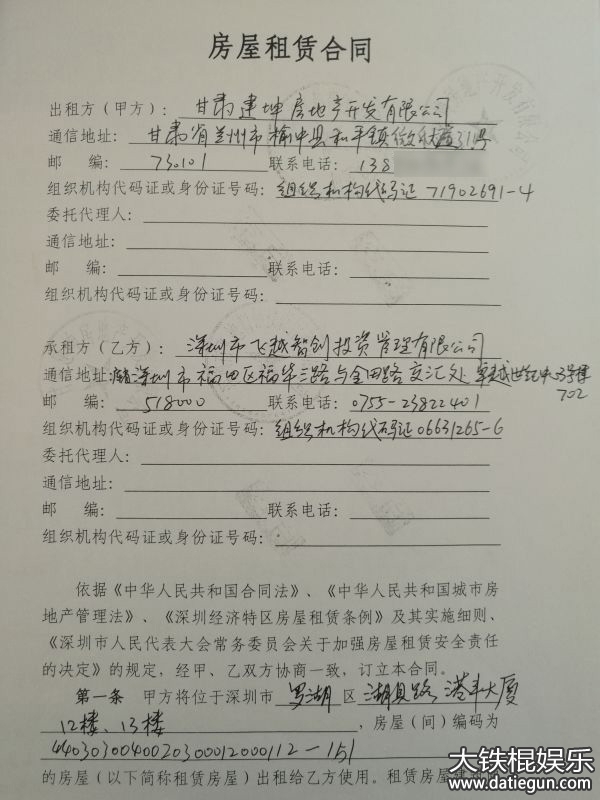 房屋租赁合同
出租方（甲方）： 甘肃建坤房地产开发有限公司
通信地址： 甘肃省兰州市榆中县和平镇 31号
邮 编： 730101 联系电话： 138
组织机构代码证或身份证号码：组织机构代码证 71902691-4
委托代理人：
通信地址：
邮 编： 联系电话：
组织机构代码证或身份证号码：
承租方（乙方）： 深圳市飞越智创投资管理有限公司
通信地址： 深圳市福田区福华三路与金田路交汇处 卓越世纪中心3号楼
邮 编： 518000 联系电话： 0755-23822401 702
组织机构代码证或身份证号码：组织机构代码证06631265-6
委托代理人：
通信地址：
邮 编： 联系电话：
组织机构代码证或身份证号码：
依据《中华人民共和国合同法》、《中华人民共和国城市房
地产管理法》、《深圳经济特区房屋租赁条例》及其实施细则、
《深圳市人民代表大会常务委员会关于加强房屋租赁安全责任
的决定》的规定，经甲、乙双方协商一致，订立本合同。
第一条 甲方将位于深圳市 罗湖 区 湖贝路 港丰大厦
12楼、13楼 ，房屋（间）编码为
4403030040020300012000112-151
的房屋（以下简称租赁房屋）出租给乙方使用。租赁房屋建
大铁棍娱乐
www.datiegun.com